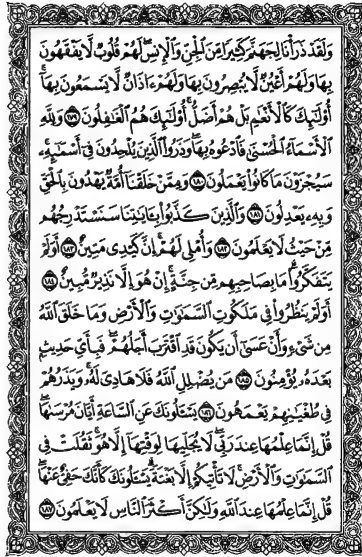 وَلَقَدْ ذَرَأْنَا لِجَهَنَّمَ كَثِيرًا مِّنَ الْجِنِّ وَالْإِنسِ لَهُمْ قُلُوبٌ لَّا يَفْقَهُونَ
بِهَا وَلَهُمْ أَعْيُنٌ لَّا يُبْصِرُونَ بِهَا وَلَهُمْ ءَاذَانٌ لَّا يَسْمَعُونَ بِهَا
أُولَٰئِكَ كَالْأَنْعَٰمِ بَلْ هُمْ أَضَلُّ أُولَٰئِكَ هُمُ الْغَٰفِلُونَ ١٧٩ وَلِلَّهِ
الْأَسْمَاءُ الْحُسْنَىٰ فَادْعُوهُ بِهَا وَذَرُوا الَّذِينَ يُلْحِدُونَ فِي أَسْمَٰئِهِ
سَيُجْزَوْنَ مَا كَانُوا يَعْمَلُونَ ١٨٠ وَمِمَّنْ خَلَقْنَا أُمَّةٌ يَهْدُونَ بِالْحَقِّ
وَبِهِ يَعْدِلُونَ ١٨١ وَالَّذِينَ كَذَّبُوا بِـَٔايَٰتِنَا سَنَسْتَدْرِجُهُم
مِّنْ حَيْثُ لَا يَعْلَمُونَ ١٨٢ وَأُمْلِي لَهُمْ إِنَّ كَيْدِي مَتِينٌ ١٨٣ أَوَلَمْ
يَتَفَكَّرُوا مَا بِصَاحِبِهِم مِّن جِنَّةٍ إِنْ هُوَ إِلَّا نَذِيرٌ مُّبِينٌ ١٨٤
أَوَلَمْ يَنظُرُوا فِي مَلَكُوتِ السَّمَٰوَٰتِ وَالْأَرْضِ وَمَا خَلَقَ اللَّهُ
مِن شَيْءٍ وَأَنْ عَسَىٰ أَن يَكُونَ قَدِ اقْتَرَبَ أَجَلُهُمْ فَبِأَيِّ حَدِيثٍ
بَعْدَهُ يُؤْمِنُونَ ١٨٥ مَن يُضْلِلِ اللَّهُ فَلَا هَادِيَ لَهُ وَيَذَرُهُمْ
فِي طُغْيَٰنِهِمْ يَعْمَهُونَ ١٨٦ يَسْـَٔلُونَكَ عَنِ السَّاعَةِ أَيَّانَ مُرْسَىٰهَا
قُلْ إِنَّمَا عِلْمُهَا عِندَ رَبِّي لَا يُجَلِّيهَا لِوَقْتِهَا إِلَّا هُوَ ثَقُلَتْ فِي
السَّمَٰوَٰتِ وَالْأَرْضِ لَا تَأْتِيكُمْ إِلَّا بَغْتَةً يَسْـَٔلُونَكَ كَأَنَّكَ حَفِيٌّ عَنْهَا
قُلْ إِنَّمَا عِلْمُهَا عِندَ اللَّهِ وَلَٰكِنَّ أَكْثَرَ النَّاسِ لَا يَعْلَمُونَ ١٨٧